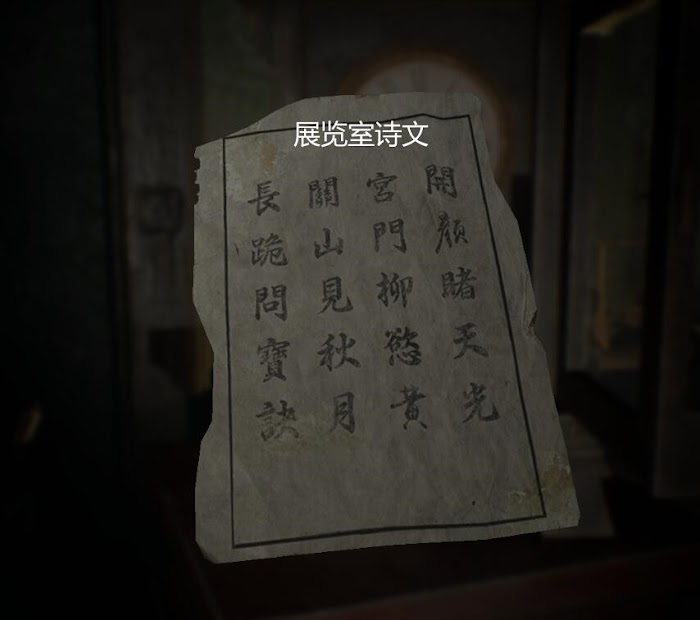 展览室诗文
開顏睹天光
宮門柳慾黄
關山見秋月
長跪問寶訣